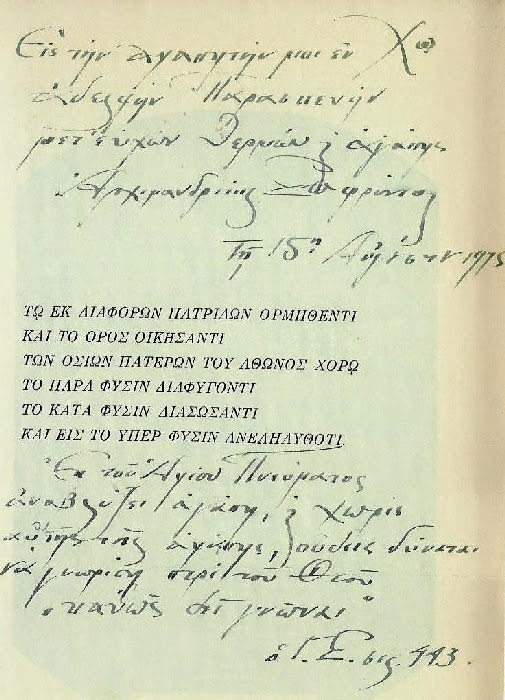 Εἰς τὴν ἀγαπητήν μοι ἐν Χῷ
ἀδελφὴν Παρασκευὴν
μετ' εὐχῶν θερμῶν & ἀγάπης
ὁ Ἀρχιμανδρίτης Σωφρόνιος
Τῇ 15ῃ Αὐγούστου 1975
Τῼ ΕΚ ΔΙΑΦΟΡΩΝ ΠΑΤΡΙΔΩΝ ΟΡΜΗΘΕΝΤΙ
ΚΑΙ ΤΟ ΟΡΟΣ ΟΙΚΗΣΑΝΤΙ
ΤΩΝ ΟΣΙΩΝ ΠΑΤΕΡΩΝ ΤΟΥ ΑΘΩΝΟΣ ΧΟΡῼ
ΤΟ ΠΑΡΑ ΦΥΣΙΝ ΔΙΑΦΥΓΟΝΤΙ
ΤΟ ΚΑΤΑ ΦΥΣΙΝ ΔΙΑΣΩΣΑΝΤΙ
ΚΑΙ ΕΙΣ ΤΟ ΥΠΕΡ ΦΥΣΙΝ ΑΝΕΛΗΛΥΘΟΤΙ
Ἐκ τοῦ Ἁγίου Πνεύματος
ἀναβλύζει ἀγάπη, & χωρὶς
αὐτῆς τῆς ἀγάπης, οὐδεὶς δύναται
νὰ γνωρίσῃ περὶ τοῦ Θεοῦ
"καθὼς δεῖ γνῶναι"
ὁ Γ. Σ. σελ. 443.